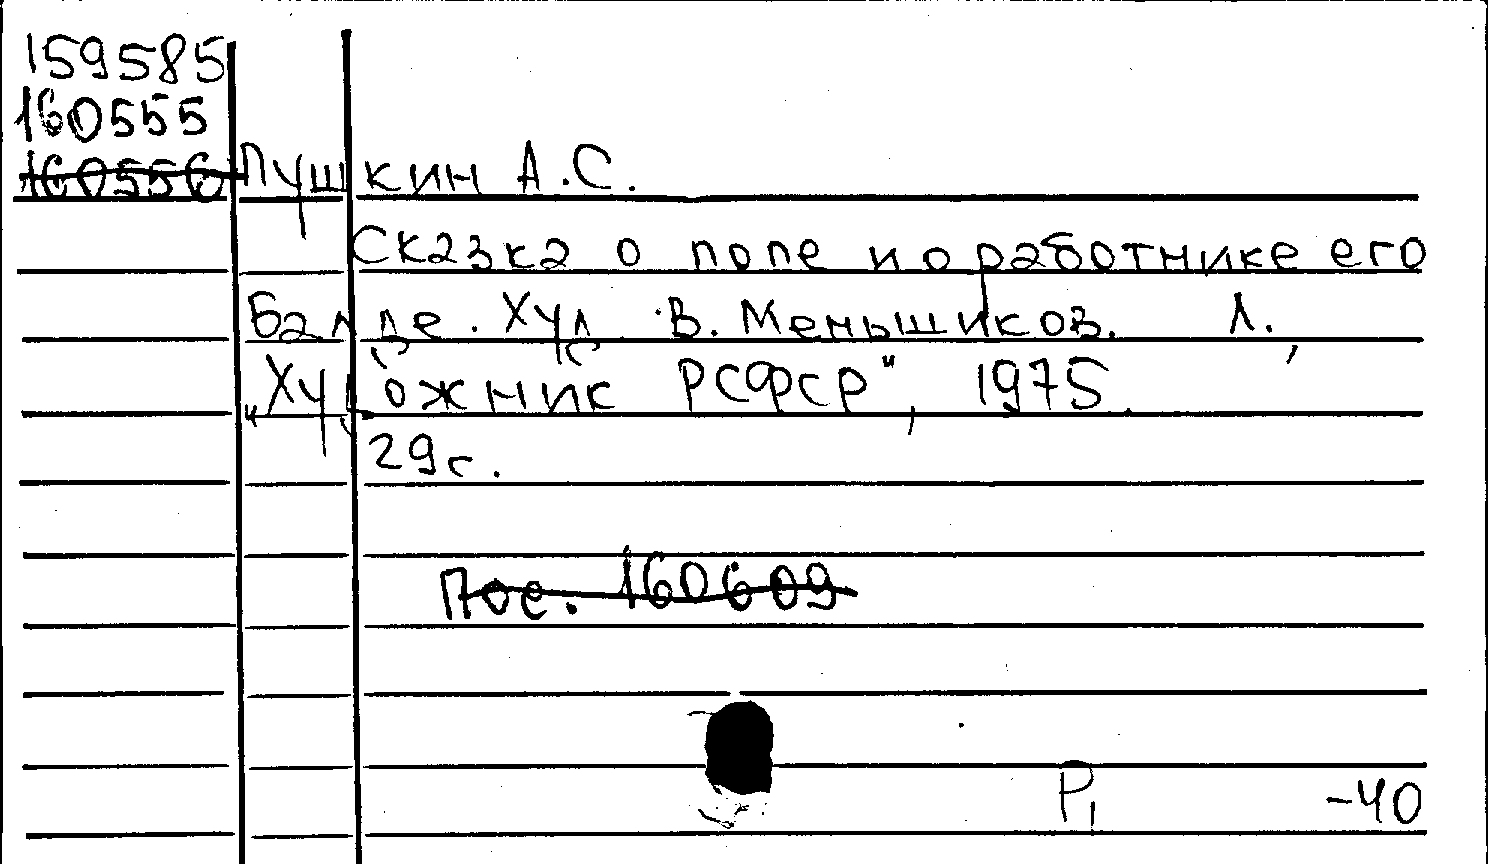 159585
160555
160556 Пушкин А.С.
Сказка о попе и о работнике его
Балде. Худ. В. Меньшиков. Л.,
„Художник РСФСР", 1975.
29с.
Пос. 160609
Р1 -40